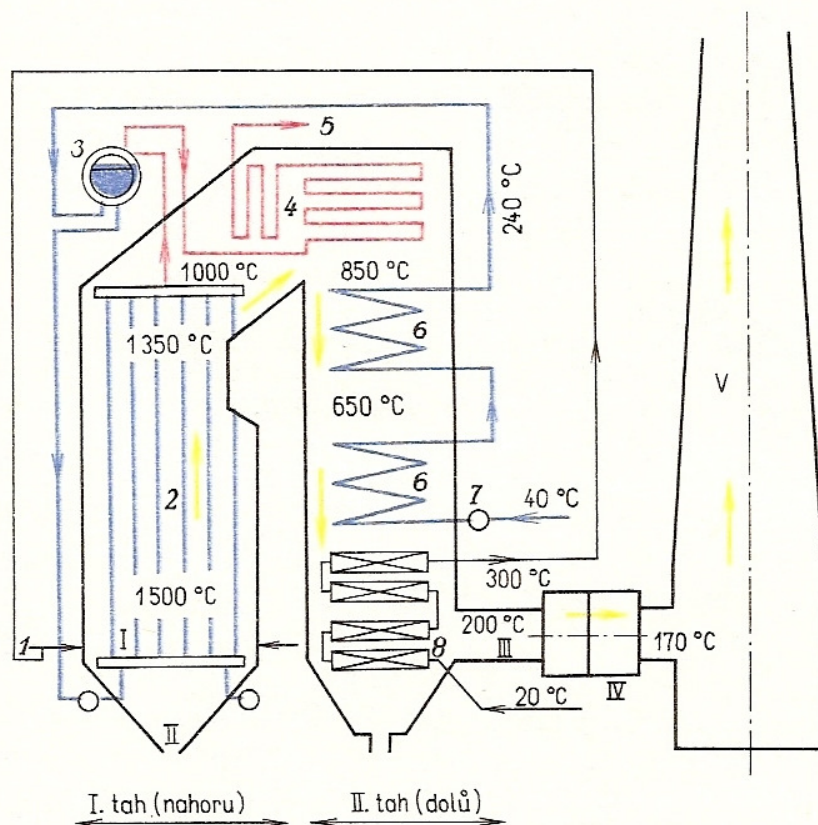 5
3
4
240 °C
1000 °C
850 °C
1350 °C
6
650 °C
V
2
6
7
40 °C
1500 °C
300 °C
1
I
200 °C
III
8
170 °C
20 °C
IV
II
I. tah (nahoru)
II. tah (dolů)